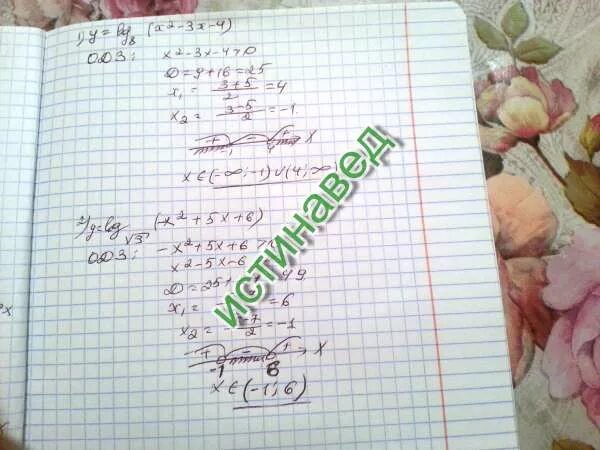 1) y = log₈ (x² - 3x - 4)
ОДЗ: x² - 3x - 4 > 0
D = 9 + 16 = 25
x₁ = (3+5)/2 = 4
x₂ = (3-5)/2 = -1
+ - + x
-1 4
x ∈ (-∞; -1) ∪ (4; ∞)
2) y = log√3 (-x² + 5x + 6)
ОДЗ: -x² + 5x + 6 >
x² - 5x - 6
D = 25 + 49
x₁ = = 6
x₂ = -7/2 = -1
+ - + x
-1 6
x ∈ (-1; 6)
истинавед